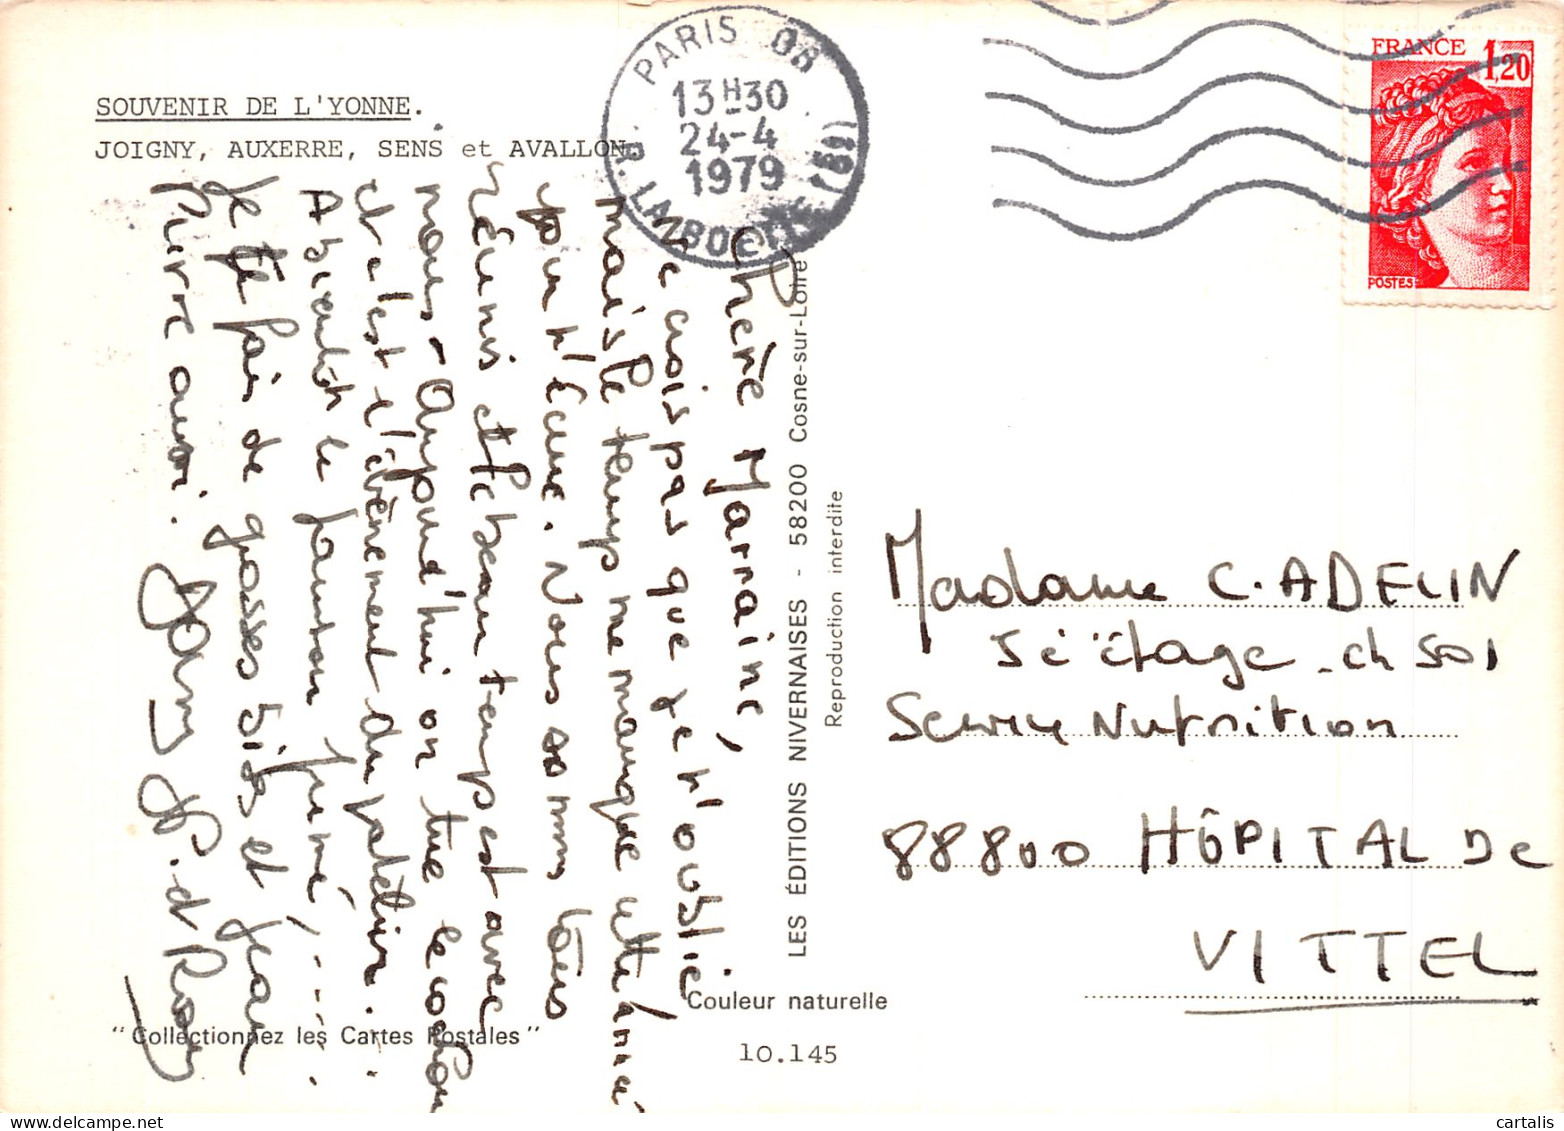 SOUVENIR DE L'YONNE.
JOIGNY, AUXERRE, SENS et AVALLON.
PARIS 08
13H30
24-4
1979
R. LA BOETIE (8E)
FRANCE 1,20
POSTES
Chère Marraine,
Ne crois pas que je t'oublie
mais le temps me manque cette année
pour t'écrire. Nous sommes tous
réunis et le beau temps est avec
nous - Aujourd'hui on tue le cochon
et c'est l'événement du patelin...
A bientôt le jambon fumé, .....
Je te fais de grosses bises et Jean
Pierre aussi.
LES ÉDITIONS NIVERNAISES - 58200 Cosne-sur-Loire
Reproduction interdite
Madame C. ADELIN
5è étage - ch 501
Service Nutrition
88800 HÔPITAL De
VITTEL
Couleur naturelle
"Collectionnez les Cartes Postales"
10.145
www.delcampe.net
cartalis